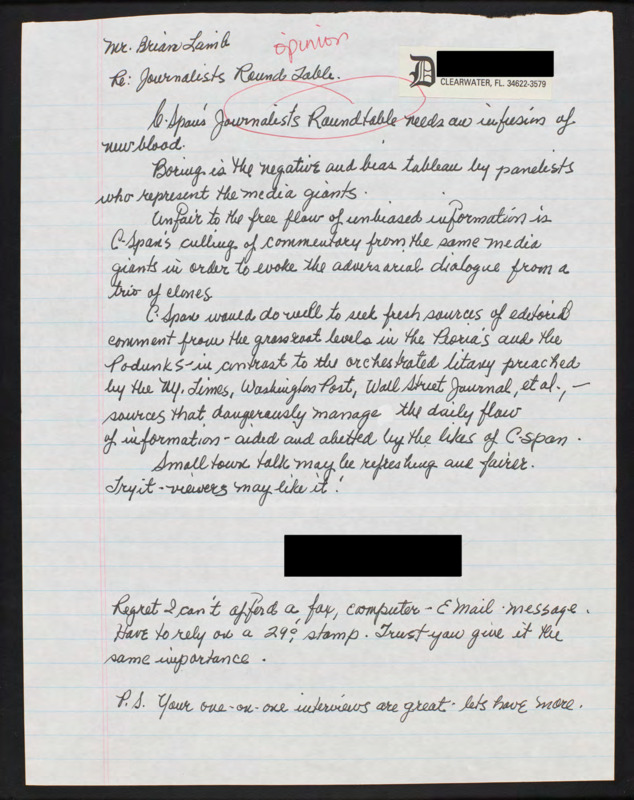 Mr. Brian Lamb
opinion
Re: Journalists Round Table.
D
CLEARWATER, FL. 34622-3579
C-Span's Journalists Roundtable needs an infusion of
new blood.
Boring is the negative and bias tableau by panelists
who represent the media giants.
Unfair to the free flow of unbiased information is
C-Span's culling of commentary from the same media
giants in order to evoke the adversarial dialogue from a
trio of clones
C-Span would do well to seek fresh sources of editorial
comment from the grassroot levels in the Peoria's and the
Podunks - in contrast to the orchestrated litany preached
by the N.Y. Times, Washington Post, Wall Street Journal, et al., -
sources that dangerously manage the daily flow
of information - aided and abetted by the likes of C-span.
Small town talk may be refreshing and fairer.
Try it - viewers may like it!
Regret I can't afford a fax, computer - E Mail message.
Have to rely on a 29¢ stamp. Trust you give it the
same importance.
P.S. Your one-on-one interviews are great - lets have more.